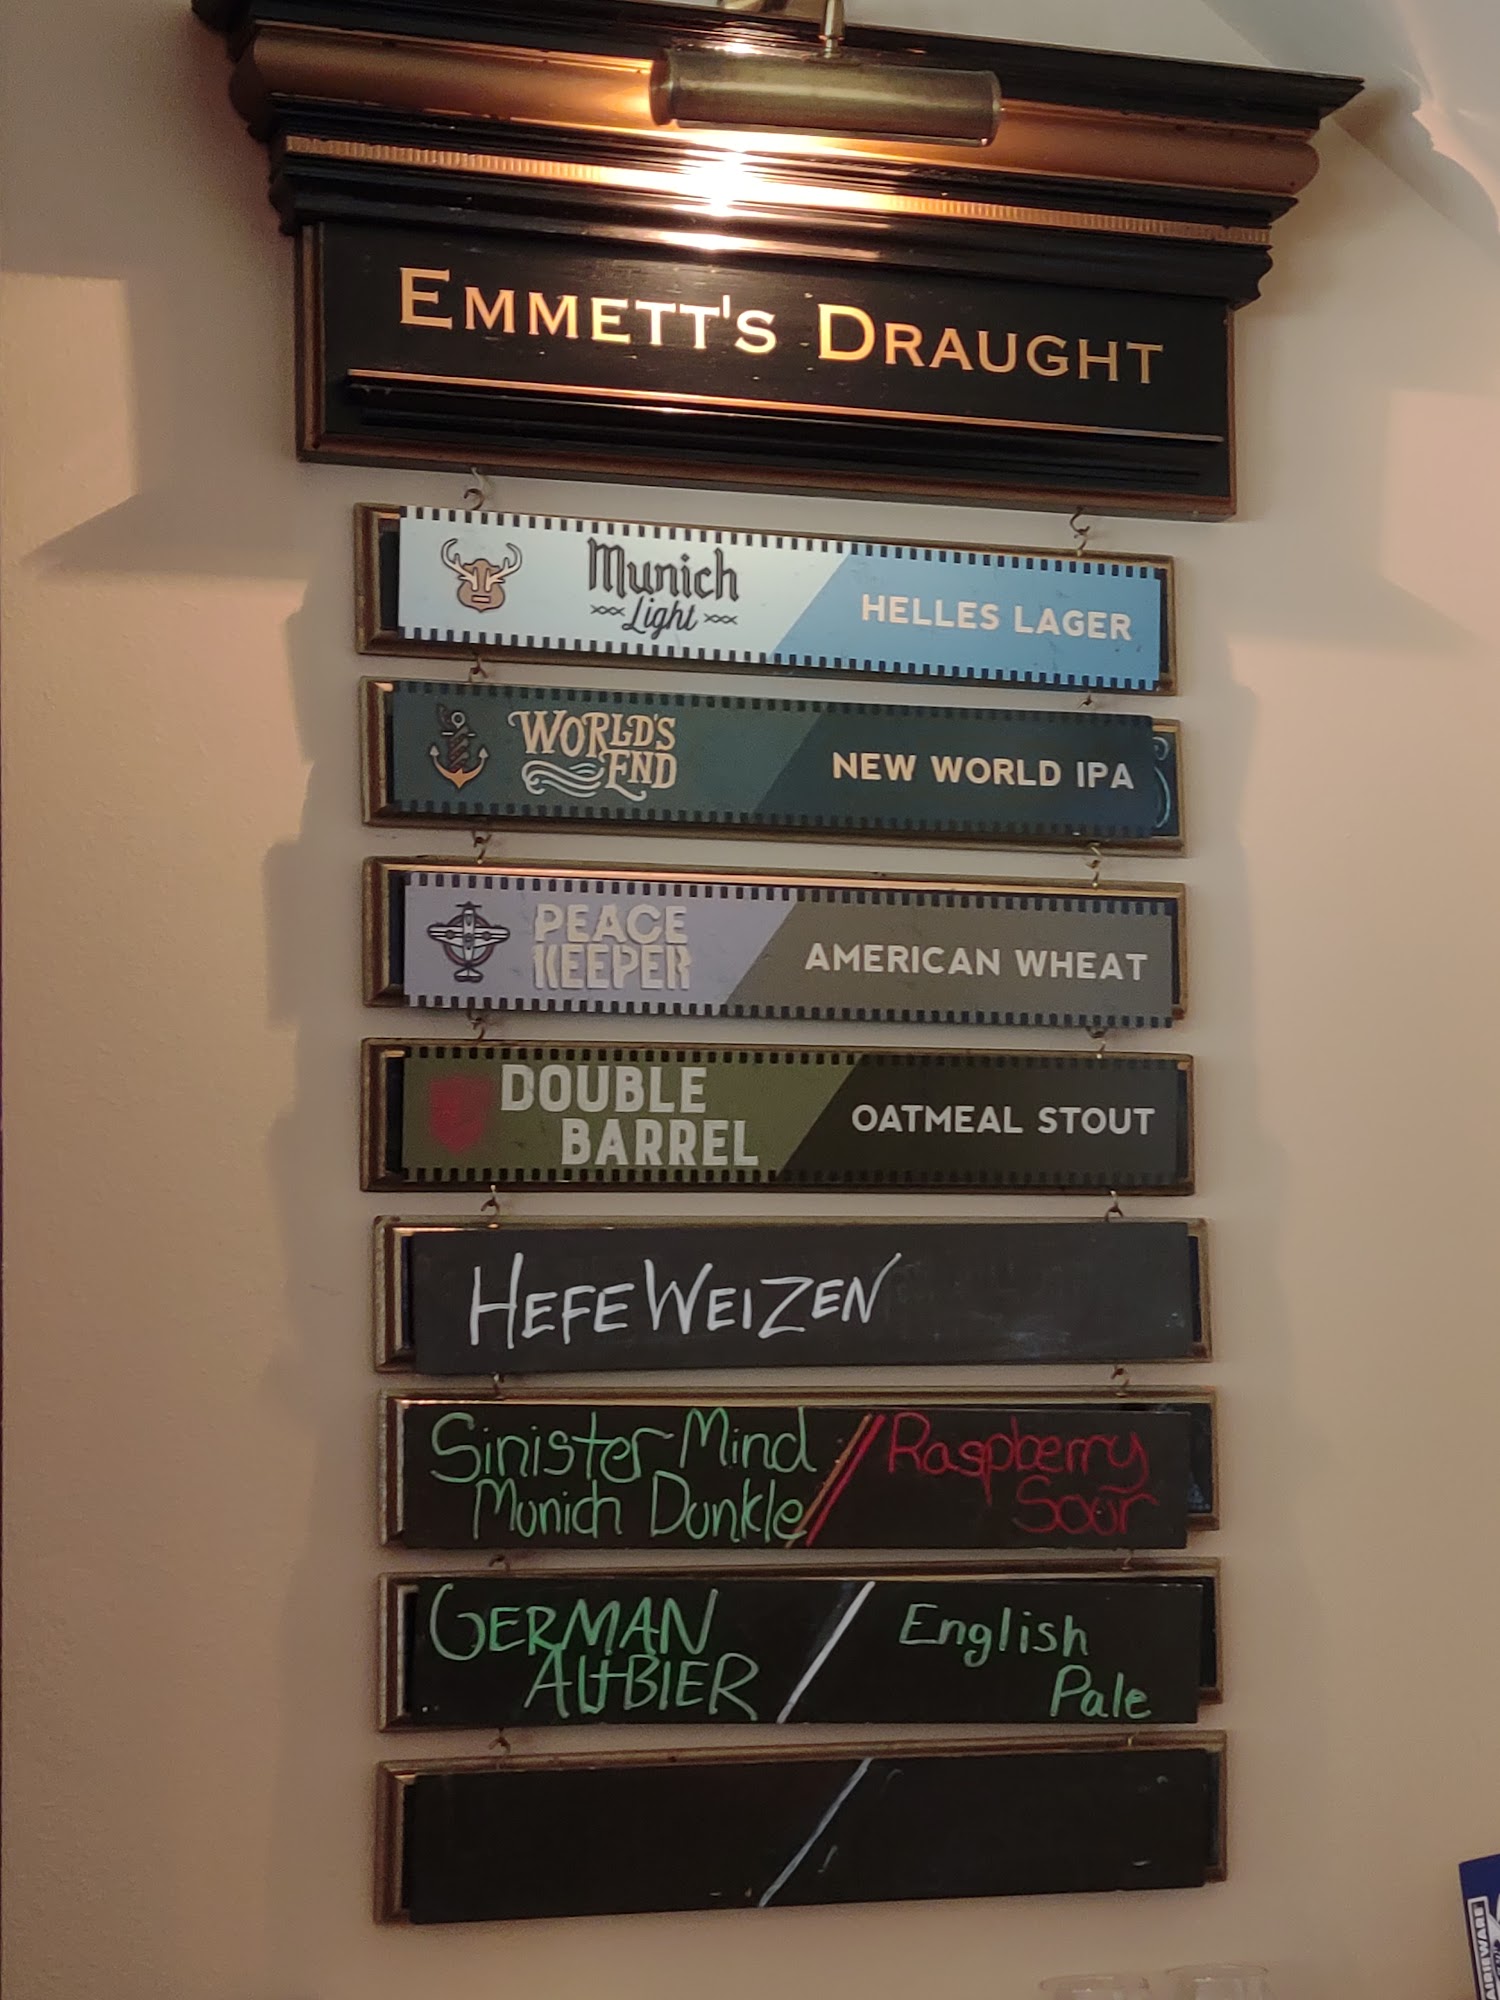 EMMETT'S DRAUGHT
Munich
Light
HELLES LAGER
WORLD'S
END
NEW WORLD IPA
PEACE
KEEPER
AMERICAN WHEAT
DOUBLE
BARREL
OATMEAL STOUT
HEFEWEIZEN
Sinister Mind
Munich Dunkle
/
Raspberry
Sour
GERMAN
ALTBIER
/
English
Pale
/